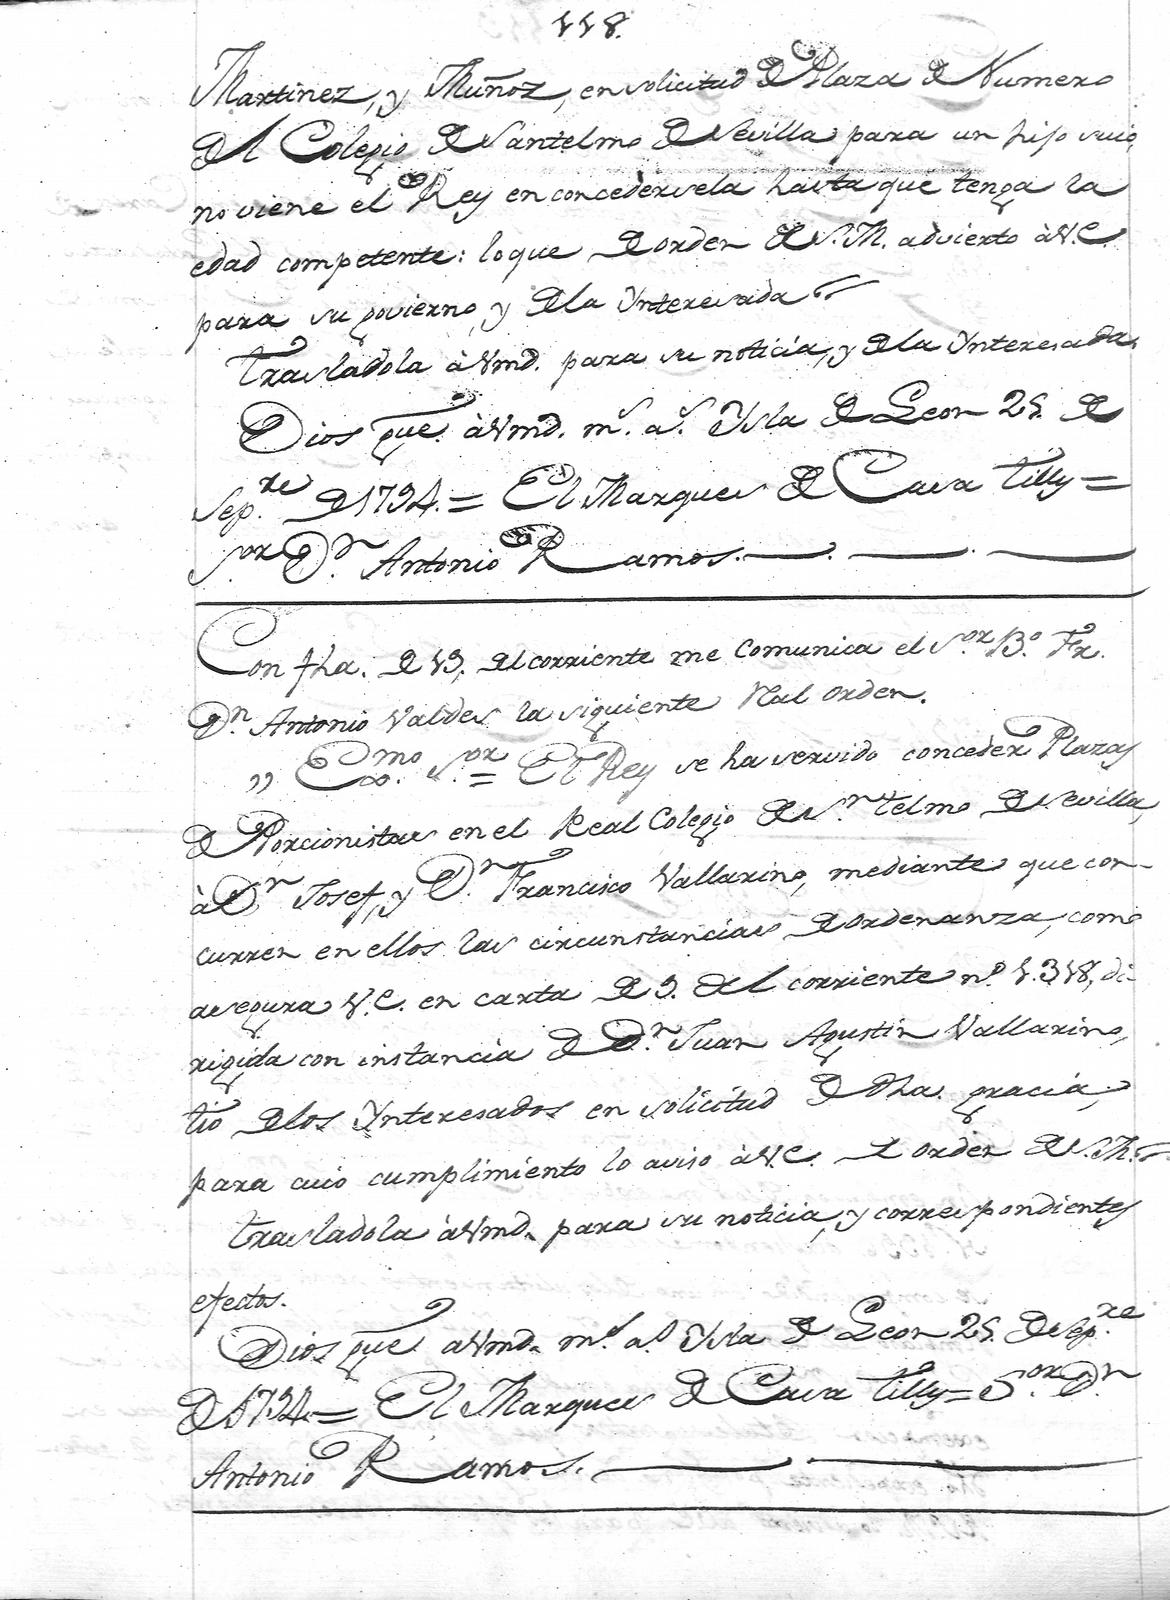 118.
Martinez, y Muñoz, en solicitud de Plaza de Numero
del Colegio de Santelmo de Sevilla para un hijo suio,
no viene el Rey en concedersela hasta que tenga la
edad competente: lo que de orden de S.M. advierto à V.E.
para su govierno, y de la Ynteresada
Trasladola à Vmd. para su noticia, y de la Ynteresada
Dios gue. à Vmd. ms. as. Ysla de Leon 25. de
Sep.re de 1794. = El Marques de Casa Tilly =
S.or D.n Antonio Ramos.
Con fha. de 13. del corriente me comunica el S.or B.o Fr.
D.n Antonio Valdes la siguiente Real orden.
„ Exmo. S.or = El Rey se ha servido conceder Plazas
de Porcionistas en el Real Colegio de S.n Telmo de Sevilla,
à D.n Josef, y D.n Francisco Vallarino, mediante que con-
curren en ellos las circunstancias de ordenanza, como
asegura V.E. en carta de 9. del corriente n.o 1.318, di-
rigida con instancia de D.n Juan Agustin Vallarino,
tio de los Ynteresados en solicitud de dha. gracia,
para cuio cumplimiento lo aviso à V.E. de orden de S.M.
Trasladola à Vmd. para su noticia, y correspondientes
efectos.
Dios gue. a Vmd. m.s a.s Ysla de Leon 25. de Sep.re
de 1794. = El Marques de Casa Tilly = S.or D.n
Antonio Ramos.